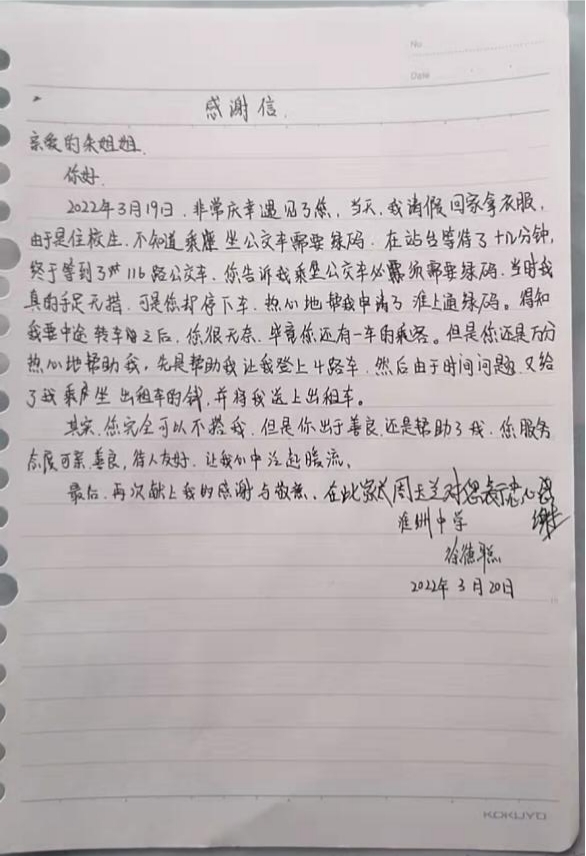 No.
Date
感谢信.
亲爱的朱姐姐.
你好.
2022年3月19日.非常庆幸遇见了您,当天,我请假回家拿衣服,
由于是住校生.不知道乘坐公交车需要绿码.在站台等待了十几分钟,
终于等到了116路公交车.你告诉我乘坐公交车必须需要绿码.当时我
真的手足无措.可是你却停下车.热心地帮我申请了淮上通绿码。得知
我要中途转车之后,你很无奈.毕竟你还有一车的乘客。但是你还是万分
热心地帮助我,先是帮助我让我登上4路车.然后由于时间问题.又给
了我乘坐出租车的钱,并将我送上出租车。
其实,您完全可以不搭我.但是你出于善良.还是帮助了我.您服务
态度可亲善良,待人友好.让我心中泛起暖流.
最后,再次献上我的感谢与敬意.在此家长周玉兰对您表示衷心感
谢
淮州中学
徐德聪
2022年3月20日
KOKUYO